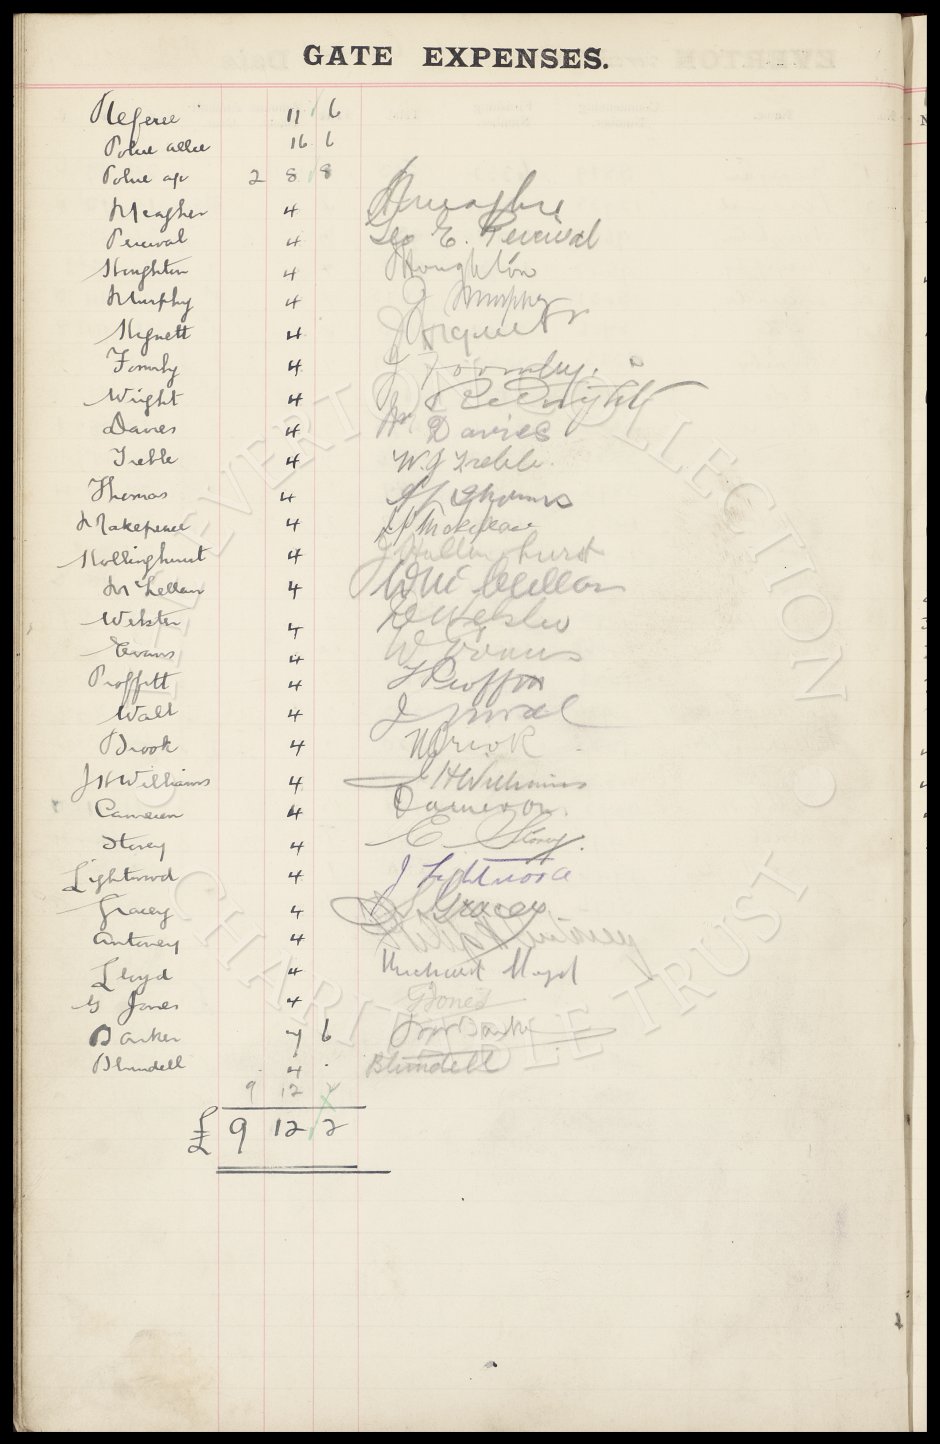 GATE EXPENSES.
Referee 11 6
Police 16 6
Police 2 8 8
Meagher 4
Percival 4 Geo E. Percival
Houghton 4 Houghton
Murphy 4 J Murphy
Hignett 4
Formby 4 J Formby.
Wright 4 Wright
Davies 4 Wm Davies
Treble 4 W. J Treble.
Thomas 4 Thomas
Makepeace 4 Makepeace
Hollinghurst 4 J Hollinghurst
McLellan 4
Webster 4
Evans 4 W Evans
Proffitt 4
Wall 4 J
Brook 4 Brook
J H Williams 4 J H Williams
Cameron 4 Cameron.
Storey 4 E. Storey.
Lightwood 4 J Lightwood
Gracey 4 Gracey
Antoney 4
Lloyd 4 Lloyd
G Jones 4 G Jones
Barker 7 6 Barker
Blundell 4 Blundell
9 12 2
£ 9 12 2
EVERTON COLLECTION
CHARITABLE TRUST